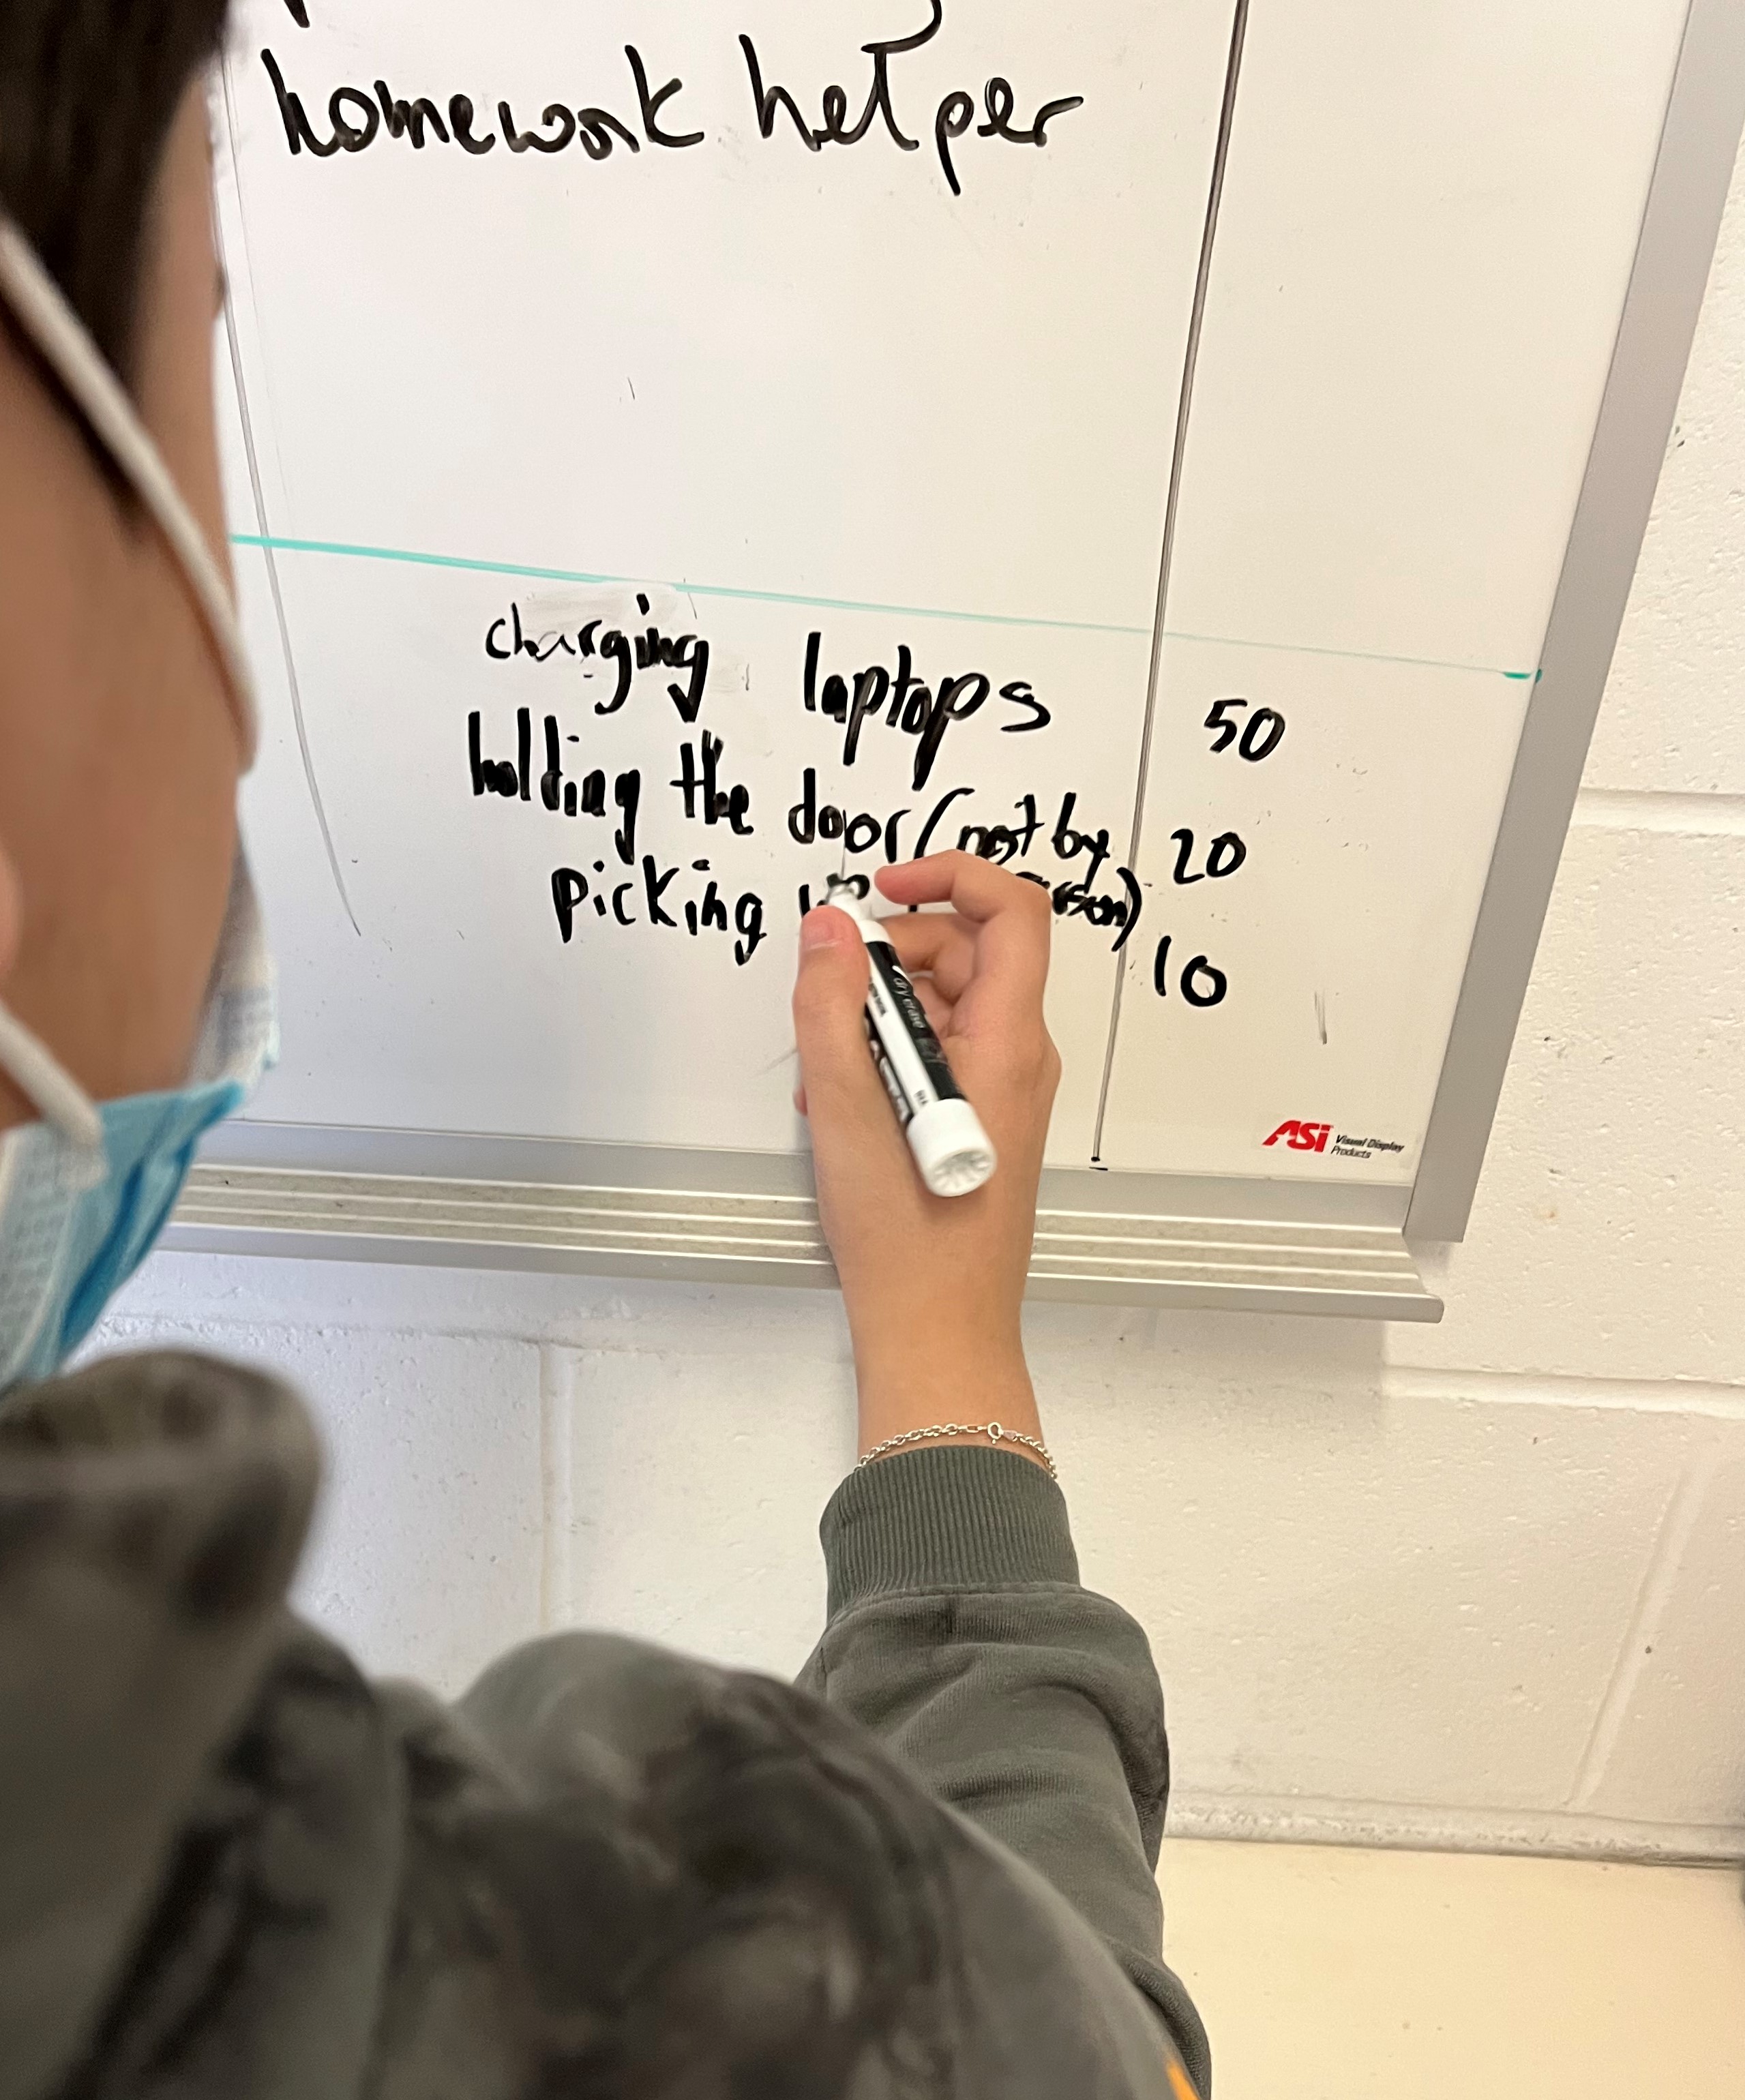 homework helper
charging laptops 50
holding the door (not by 20
picking
10
ASI Visual Display
Products
dry erase